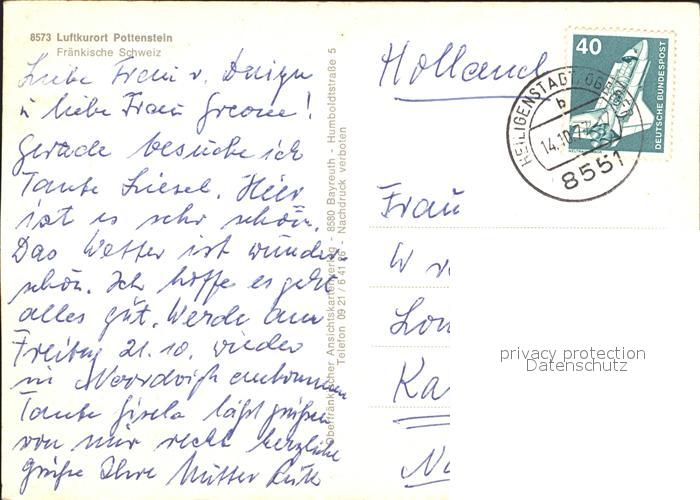 8573 Luftkurort Pottenstein
Fränkische Schweiz
Liebe Frau v.
u liebe Frau
Gerade besuche ich
Tante Liesel. Hier
ist es sehr schön.
Das Wetter ist wunder
schön. Ich hoffe es geht
alles gut. Werde am
Freitag 21.10. wieder
in Noordwijk ankommen
Tante Gisela läßt grüßen
von mir recht herzliche
Grüße Ihre Mutter
Oberfränkischer Ansichtskartenverlag - 8580 Bayreuth - Humboldtstraße 5
Telefon 09 21 / 6 41 96 - Nachdruck verboten
Holland
40
DEUTSCHE BUNDESPOST
HEILIGENSTADT
b
14.10.77
8551
Frau
W v
Ka
privacy protection
Datenschutz